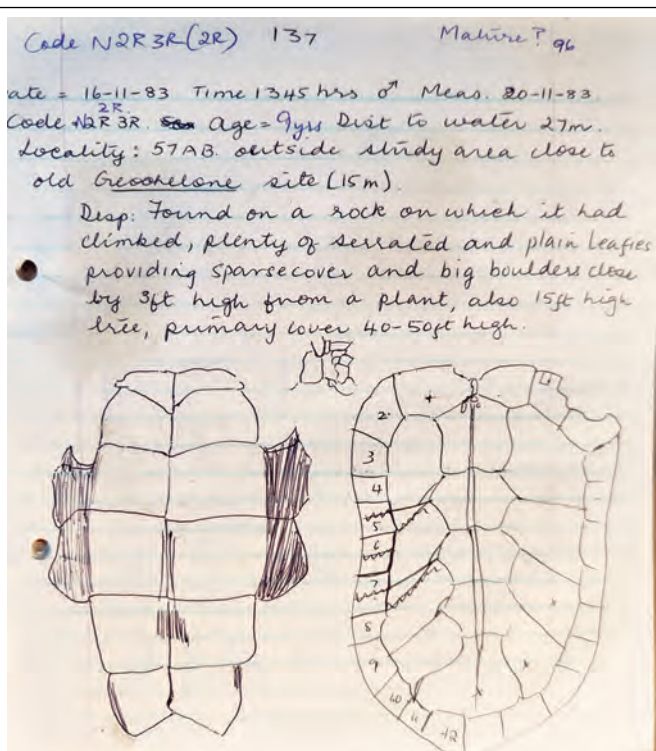 Code N2R3R(2R) 137 Mature? 96
ate = 16-11-83 Time 1345 hrs ♂ Meas. 20-11-83
2R
Code N2R 3R. Age = 9yrs Dist to water 27m.
Locality: 57AB. outside study area close to
old Geochelone site (15m).
Desp: Found on a rock on which it had
climbed, plenty of serrated and plain leafies
providing sparse cover and big boulders close
by 3ft high from a plant, also 15ft high
tree, primary cover 40-50ft high.
1
2
3
4
5
6
7
8
9
10
11
12